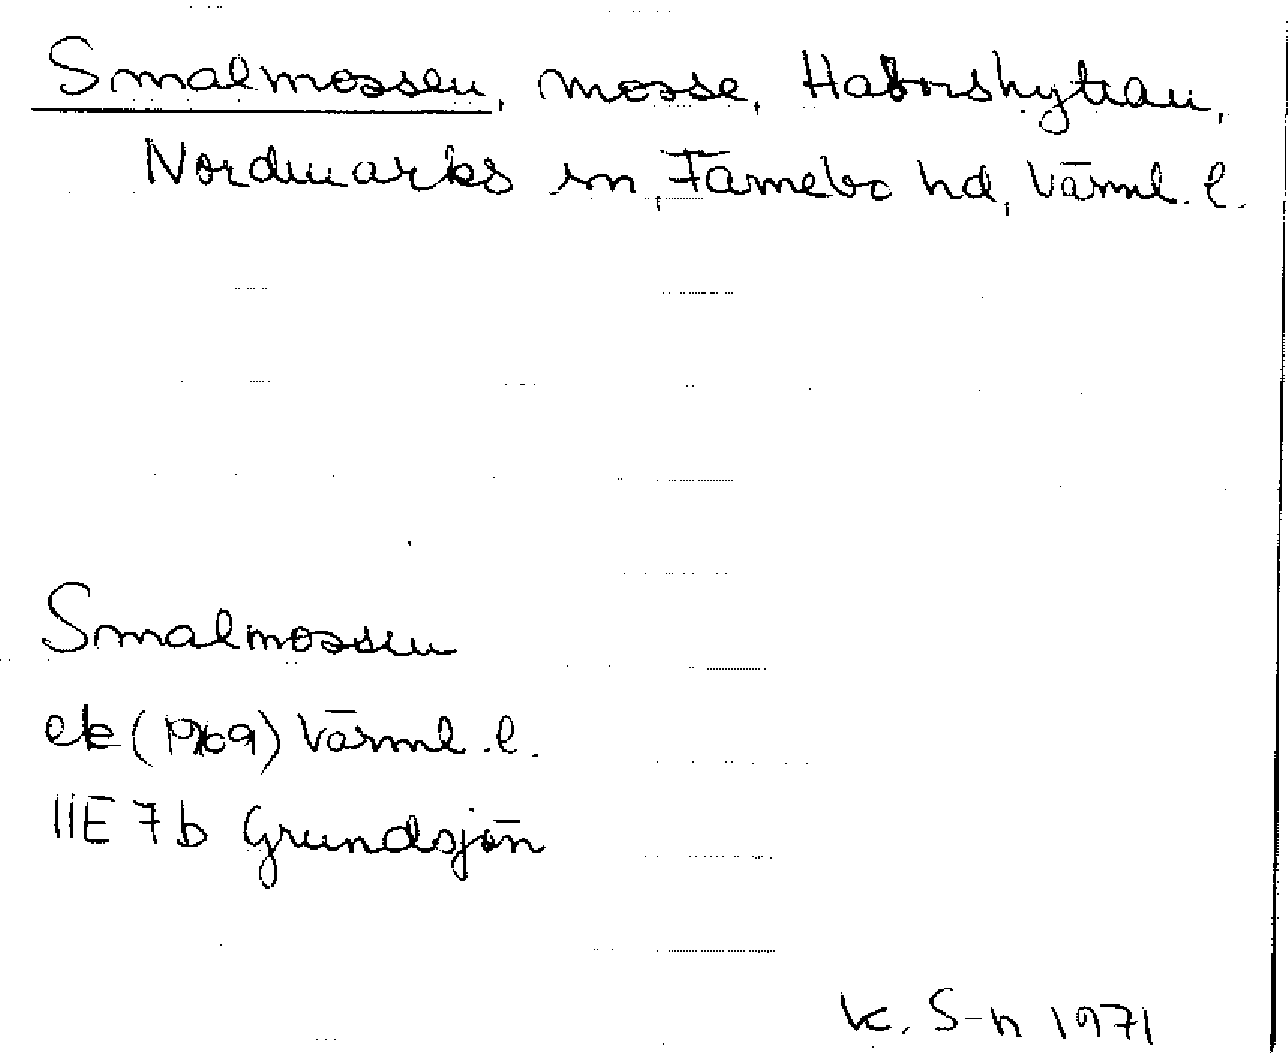 Smalmossen, mosse, Haborshyttan,
Nordmarks sn, Färnebo hd, Värml. l.
Smalmossen
ek (1969) Värml. l.
11E 7b Grundsjön
K. S-n 1971